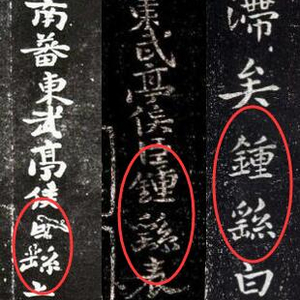 南蕃東武亭侯臣繇
東武亭侯臣鍾繇表
滯矣鍾繇白